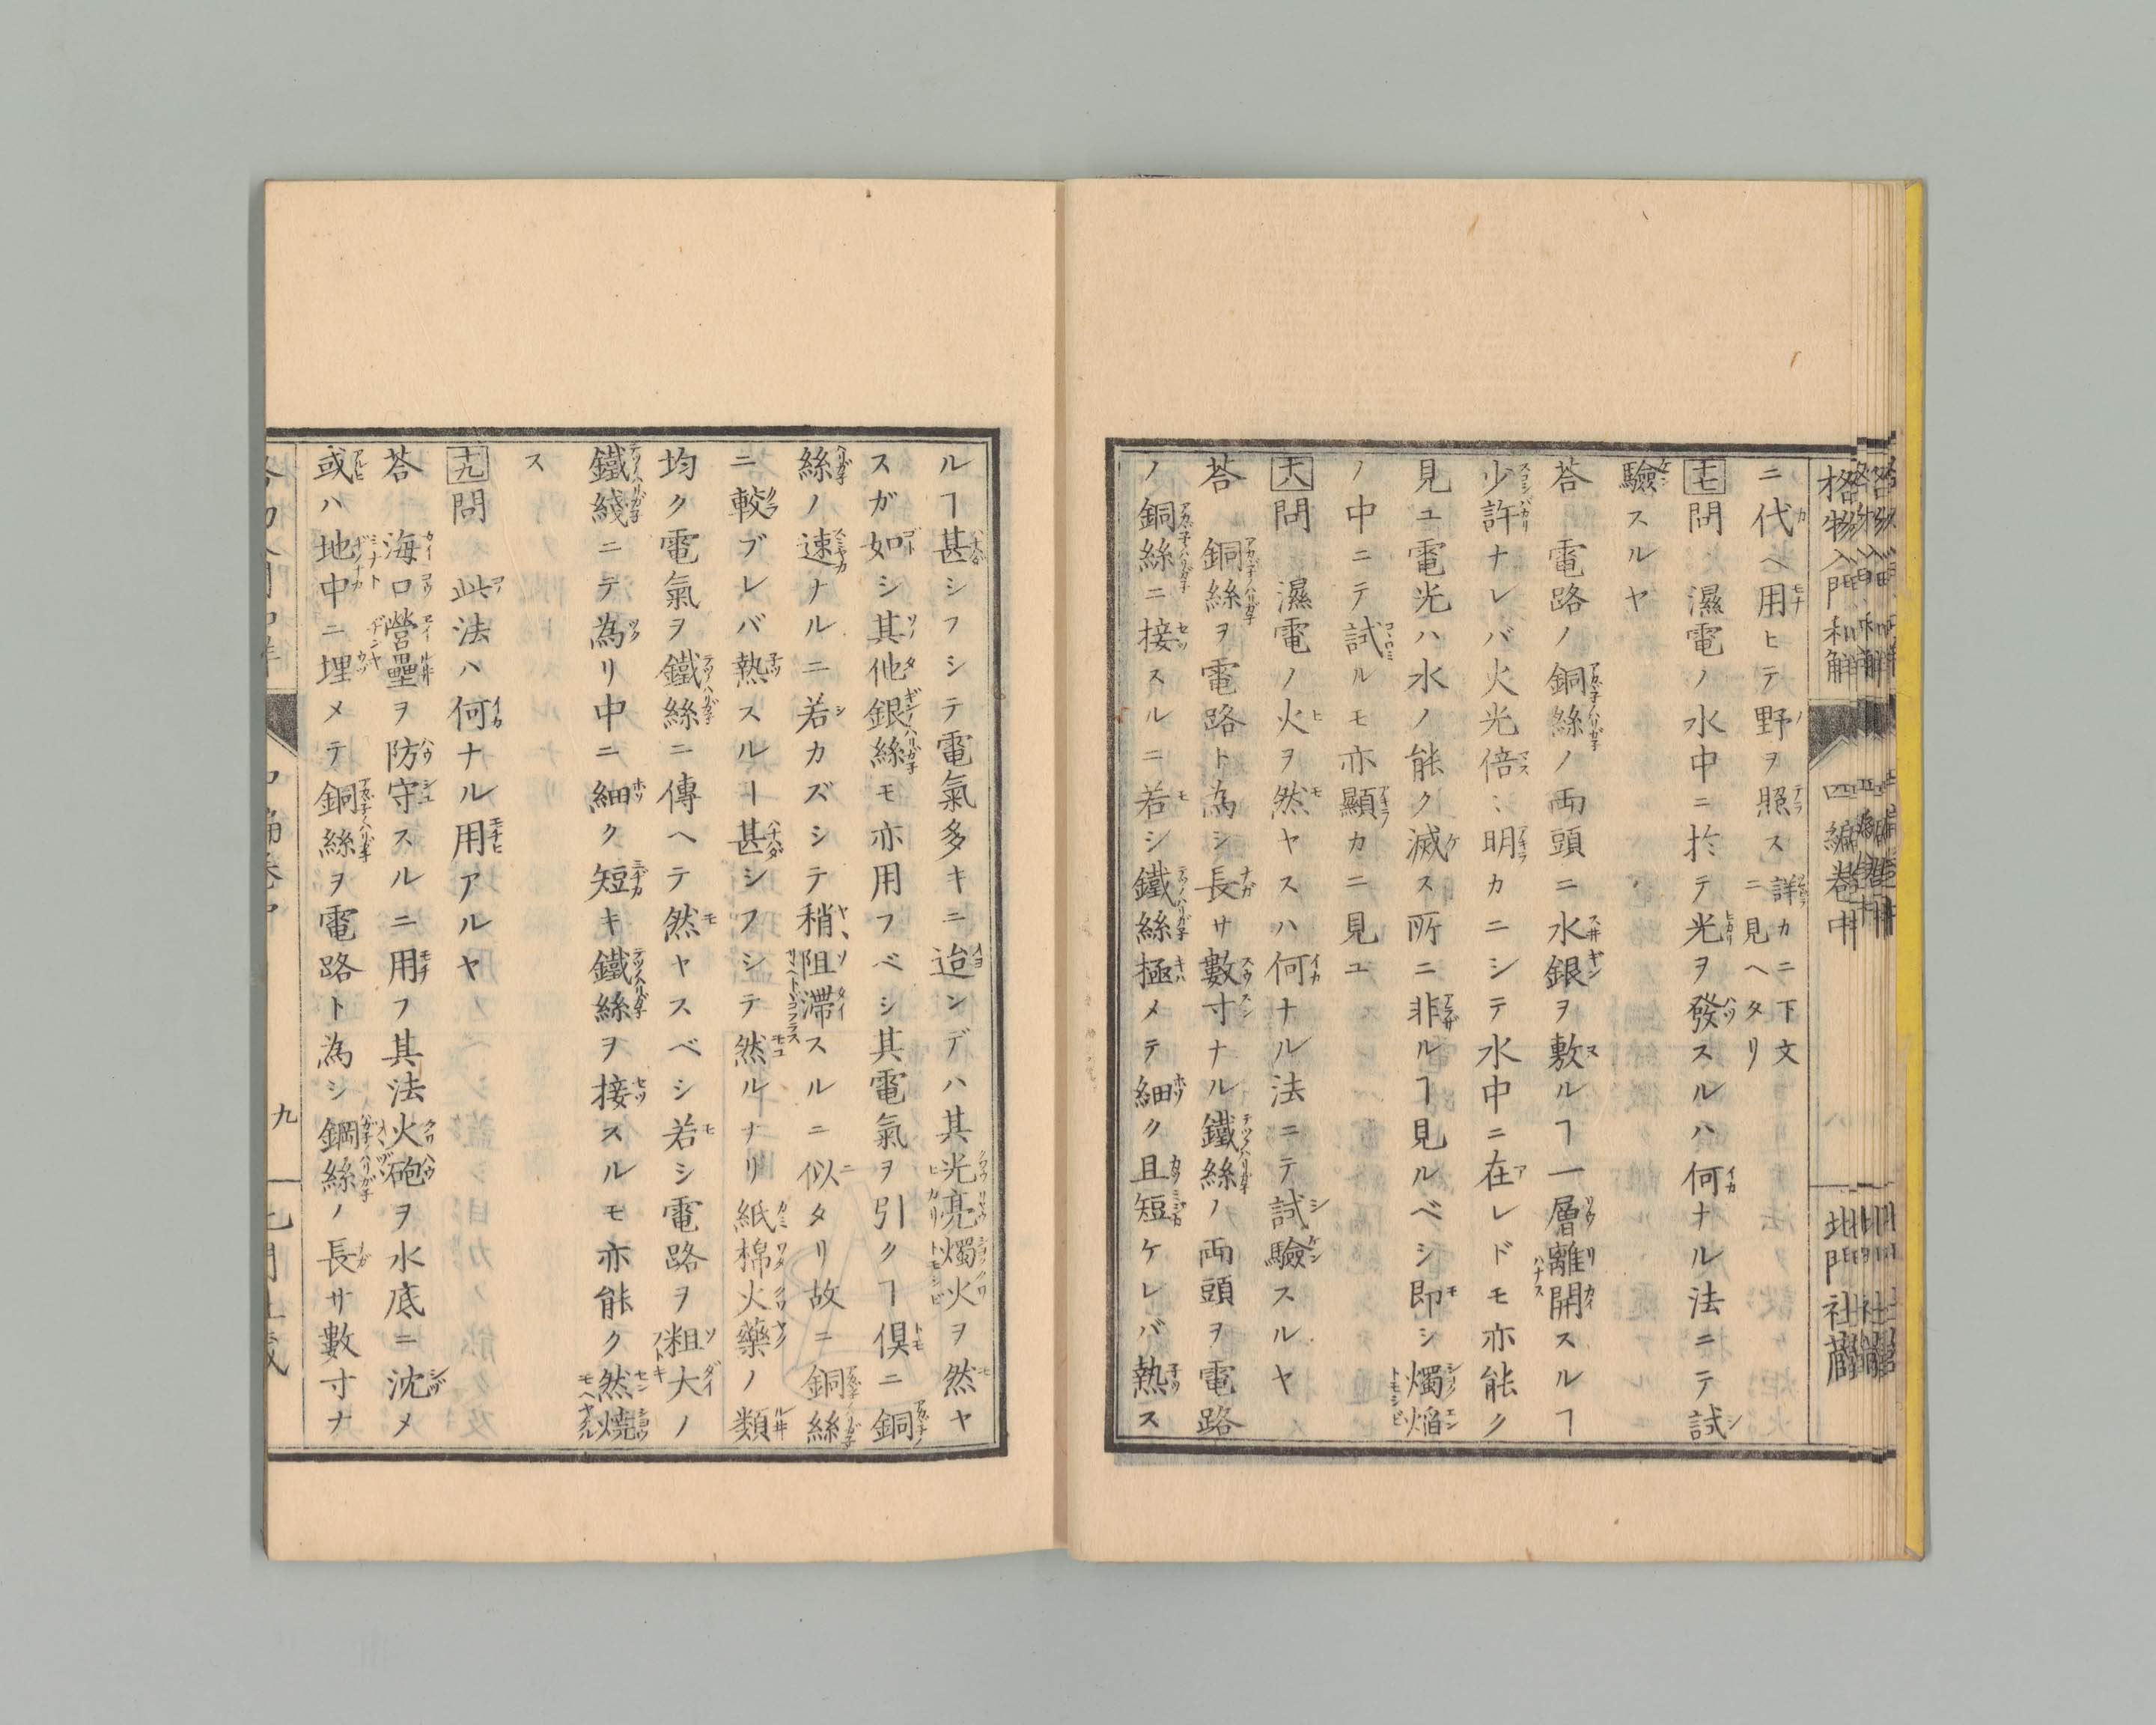 格物入門和解 四編巻中 北門社藏
ニ代ヘ用ヒテ野ヲ照ス詳カニ下文ニ見ヘタリ
十七問 濕電ノ水中ニ於テ光ヲ發スルハ何ナル法ニテ試
驗スルヤ
荅 電路ノ銅絲ノ両頭ニ水銀ヲ敷ルヿ一層離開スルヿ
少許ナレバ火光倍〻明カニシテ水中ニ在レドモ亦能ク
見ユ電光ハ水ノ能ク滅ス所ニ非ルヿ見ルベシ即シ燭焔
ノ中ニテ試ルモ亦顯カニ見ユ
十八問 濕電ノ火ヲ然ヤスハ何ナル法ニテ試驗スルヤ
荅 銅絲ヲ電路ト為シ長サ數寸ナル鐵絲ノ両頭ヲ電路
ノ銅絲ニ接スルニ若シ鐵絲極メテ細ク且短ケレバ熱ス
ルヿ甚シフシテ電氣多キニ迨ンデハ其光亮燭火ヲ然ヤ
スガ如シ其他銀絲モ亦用フベシ其電氣ヲ引クヿ倶ニ銅
絲ノ速ナルニ若カズシテ稍阻滯スルニ似タリ故ニ銅絲
ニ較ブレバ熱スルヿ甚シフシテ然ルナリ紙棉火藥ノ類
均ク電氣ヲ鐵絲ニ傳ヘテ然ヤスベシ若シ電路ヲ粗大ノ
鐵綫ニテ為リ中ニ細ク短キ鐵絲ヲ接スルモ亦能ク然燒
ス
十九問 此法ハ何ナル用アルヤ
荅 海口營壘ヲ防守スルニ用フ其法火砲ヲ水底ニ沈メ
或ハ地中ニ埋メテ銅絲ヲ電路ト為シ鋼絲ノ長サ數寸ナ
九